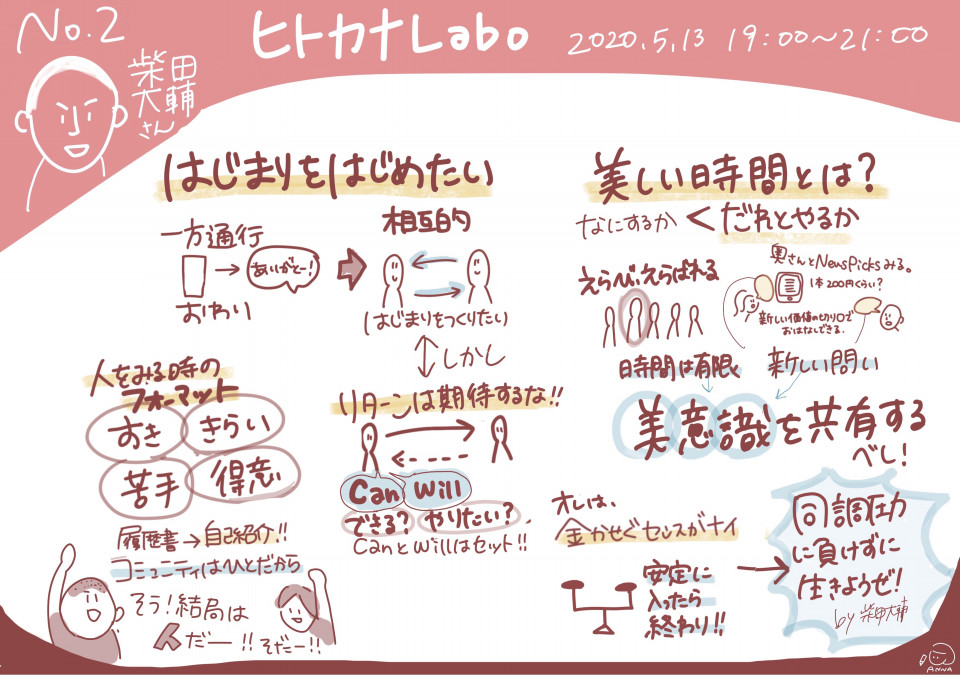 No.2
柴田
大輔
さん
ヒトカナLabo
2020.5.13 19:00〜21:00
はじまりをはじめたい
一方通行
ありがとー!
おわり
相互的
はじまりをつくりたい
しかし
リターンは期待するな!!
Can Will
できる? やりたい?
CanとWillはセット!!
人をみる時の
フォーマット
すき きらい
苦手 得意
履歴書→自己紹介!!
コミュニティはひとだから
そう!結局は
人だー!!
そだー!!
美しい時間とは?
なにするか < だれとやるか
えらび、えらばれる
奥さんとNewsPicksみる。
1本200円くらい?
新しい価値の切り口で
おはなしできる.
時間は有限
新しい問い
美意識を共有する
べし!
オレは、
金かせぐセンスがナイ
安定に
入ったら
終わり!!
同調圧力
に負けずに
生きようぜ!
by 柴田大輔
ANNA